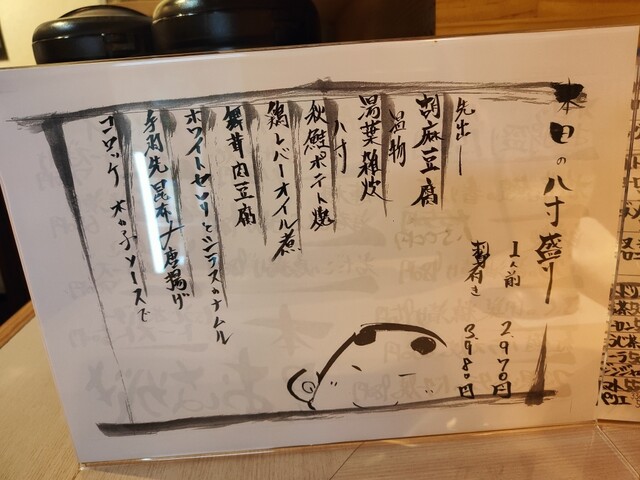 本日の八寸盛り
1人前 2,970円
刺身付き 3,980円
先出し
胡麻豆腐
温物
湯葉雑炊
八寸
秋鮭ポテト焼
鶏レバーオイル煮
舞茸肉豆腐
ホワイトセロリとシラスのナムル
手羽先昆布〆唐揚げ
コロッケ 木の子ソースで